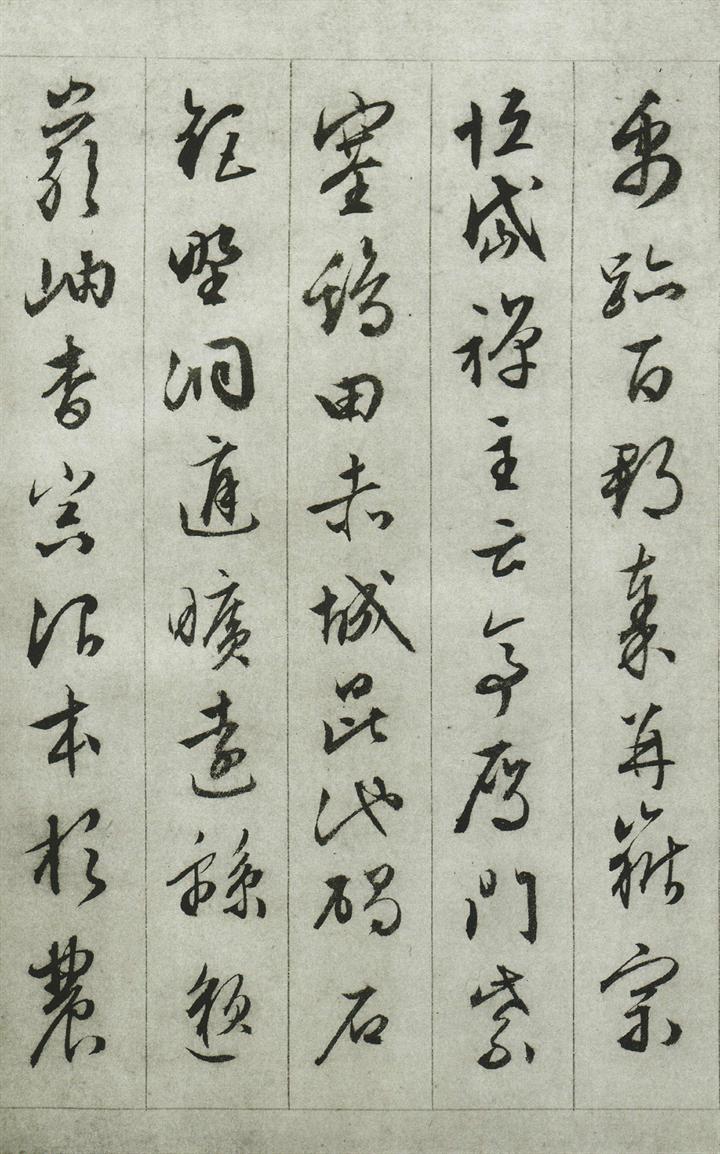 禹跡百郡秦并嶽宗
恒岱禪主云亭鴈門紫
塞鷄田赤城昆池碣石
鉅野洞庭曠遠緜邈
巖岫杳冥治本於農